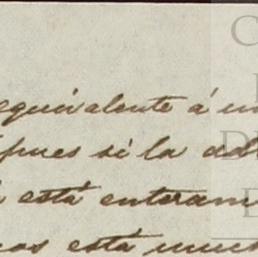 equivalente á un
pues si la deb
está enteram
cos está much